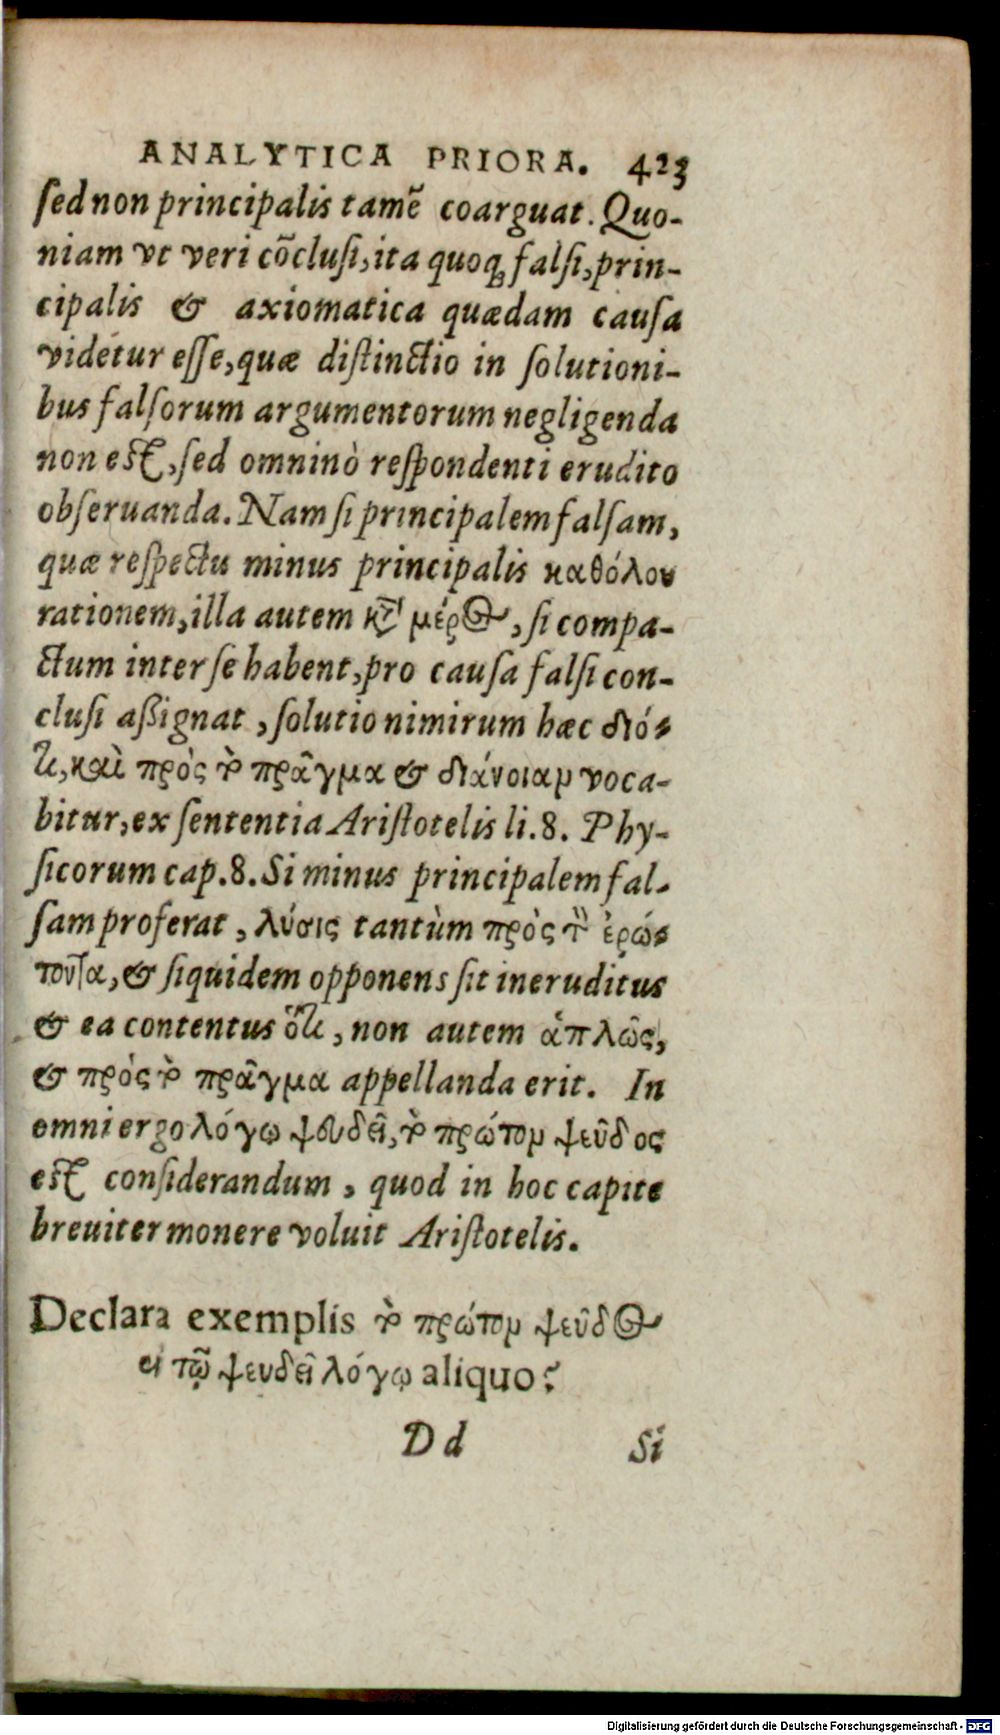 ANALYTICA PRIORA. 423
sed non principalis tamẽ coarguat. Quo-
niam vt veri cõclusi, ita quoq; falsi, prin-
cipalis & axiomatica quædam causa
videtur esse, quæ distinctio in solutioni-
bus falsorum argumentorum negligenda
non est, sed omninò respondenti erudito
obseruanda. Nam si principalem falsam,
quæ respectu minus principalis καθόλου
rationem, illa autem κτ̀ μέρος, si compa-
ctum inter se habent, pro causa falsi con-
clusi aßignat, solutio nimirum hæc διό-
τι, καὶ πρὸς τὸ πρᾶγμα & διάνοιαν voca-
bitur, ex sententia Aristotelis li. 8. Phy-
sicorum cap. 8. Si minus principalem fal-
sam proferat, λύσις tantùm πρὸς τὸν ἐρώ-
τοῦντα, & siquidem opponens sit ineruditus
& ea contentus ὅτι, non autem ἁπλῶς,
& πρὸς τὸ πρᾶγμα appellanda erit. In
omni ergo λόγῳ ψευδεῖ, τὸ πρώτον ψεῦδος
est considerandum, quod in hoc capite
breuiter monere voluit Aristotelis.
Declara exemplis τὸ πρώτον ψεῦδος
ἐν τῷ ψευδεῖ λόγῳ aliquo?
Dd Si
Digitalisierung gefördert durch die Deutsche Forschungsgemeinschaft - DFG